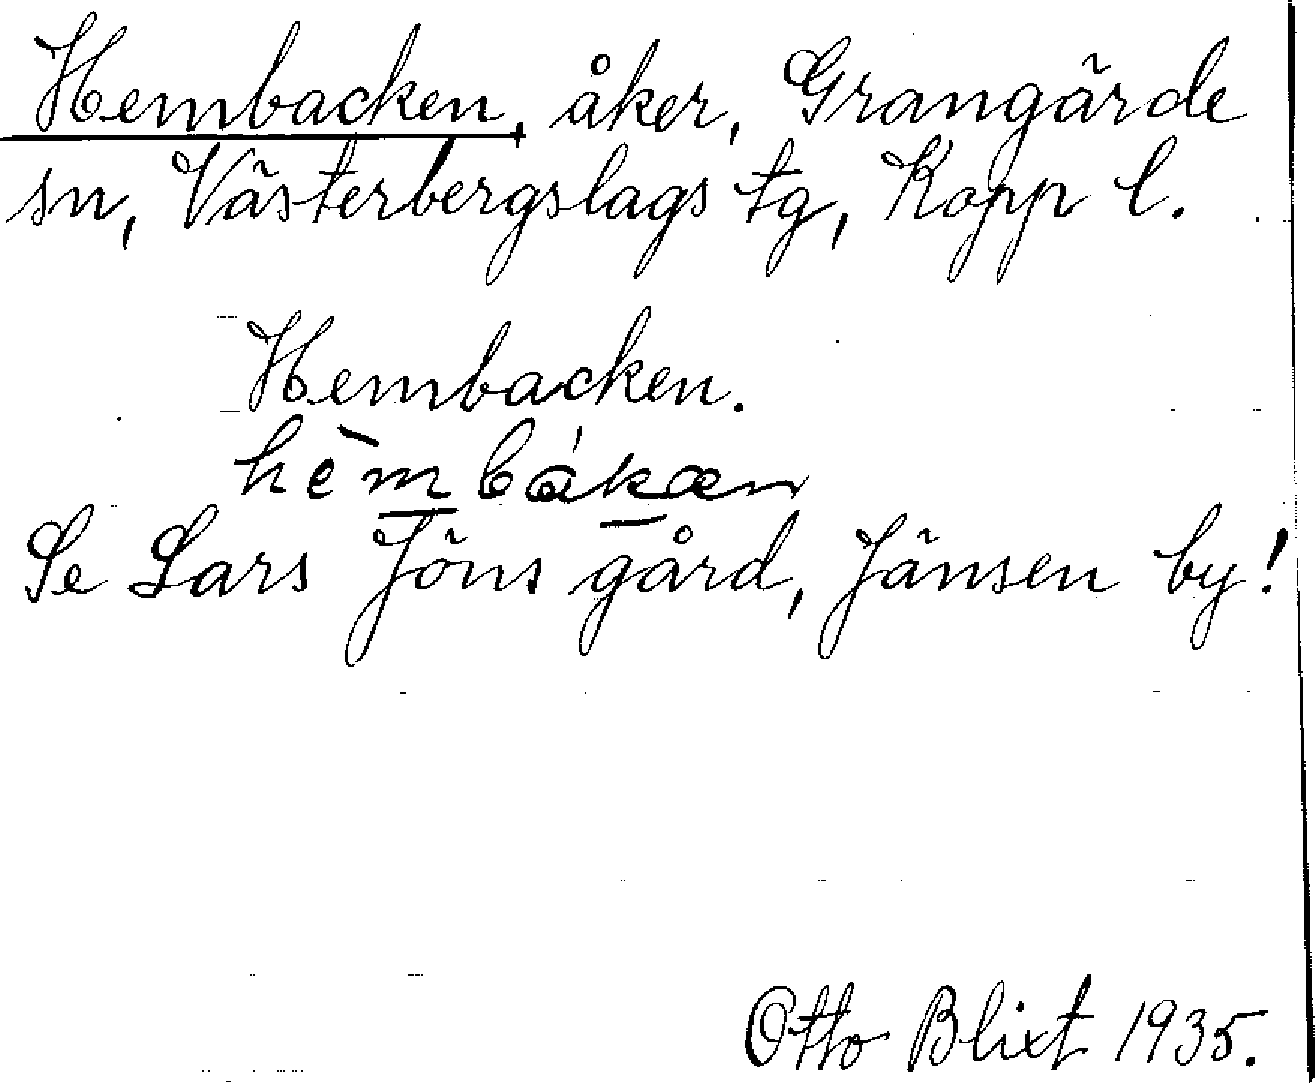 Hembacken, åker, Grangärde
sn, Västerbergslags tg, Kopp l.
Hembacken.
hèmbákæn
Se Lars Jöns gård, Jänsen by!
Otto Blixt 1935.